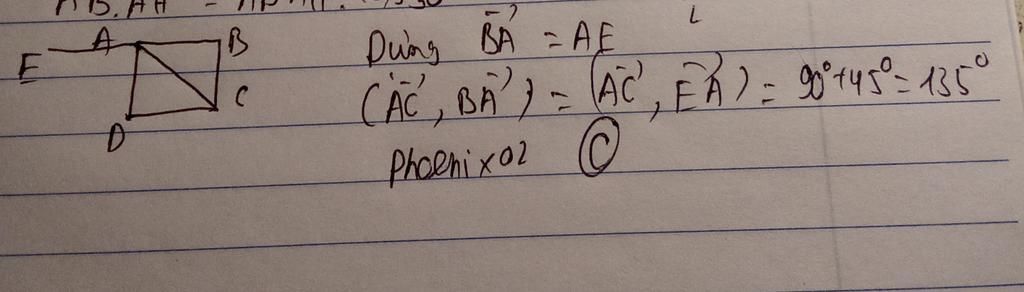 A B
E
C
D
Dựng \vec{BA} = AE
(\vec{AC}, \vec{BA}) = (\vec{AC}, \vec{EA}) = 90° + 45° = 135°
Phoenix02 C